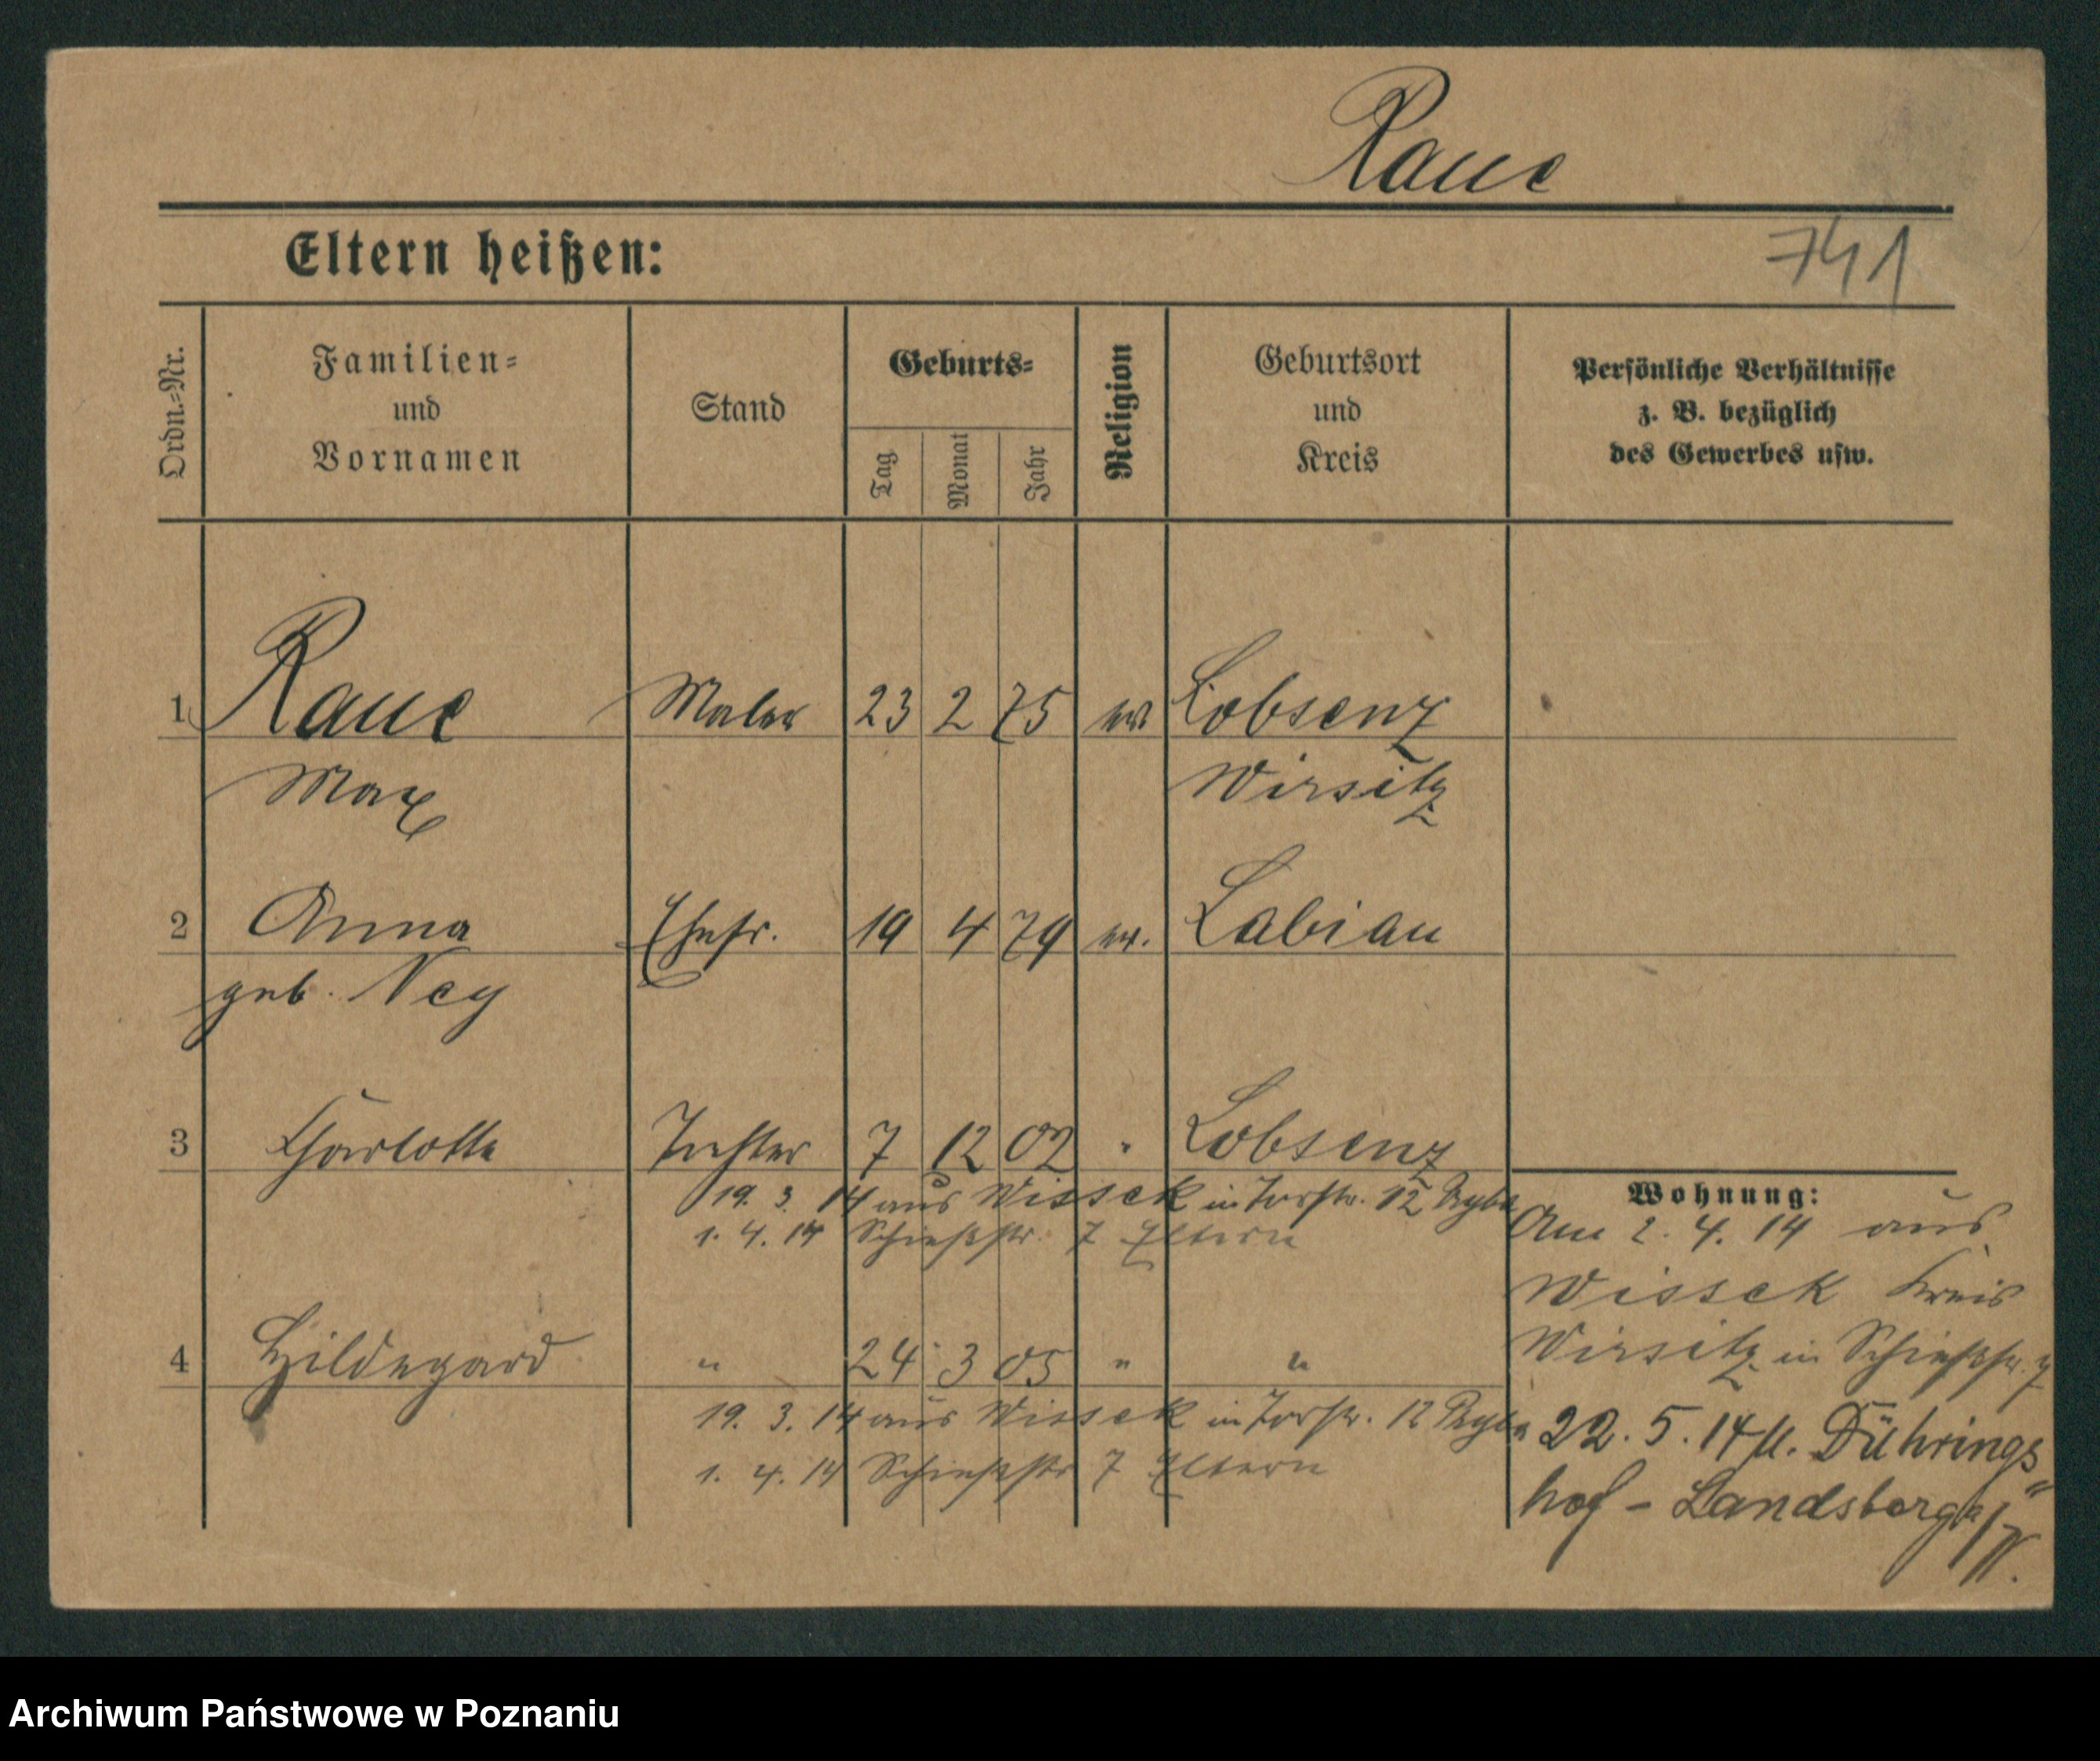 Raue
Eltern heißen:
741
Ordn.-Nr.
Familien-
und
Vornamen
Stand
Geburts-
Tag
Monat
Jahr
Religion
Geburtsort
und
Kreis
Persönliche Verhältnisse
z. B. bezüglich
des Gewerbes usw.
1 Raue Maler 23 2 75 ev Lobsenz
Max Wirsitz
2 Anna Ehefr. 19 4 79 ev. Labiau
geb. Ney
3 Charlotte Tochter 7 12 02 " Lobsenz
19. 3. 14 aus Wissek in Torstr. 12
1. 4. 14 Schießstr. 7 Eltern
4 Hildegard " 24 3 05 " "
19. 3. 14 aus Wissek in Torstr. 12
1. 4. 14 Schießstr 7 Eltern
Wohnung:
Am 2. 4. 14 aus
Wissek Kreis
Wirsitz in Schießstr. 7
22. 5. 14 n. Dührings
hof - Landsberg a/W.
Archiwum Państwowe w Poznaniu